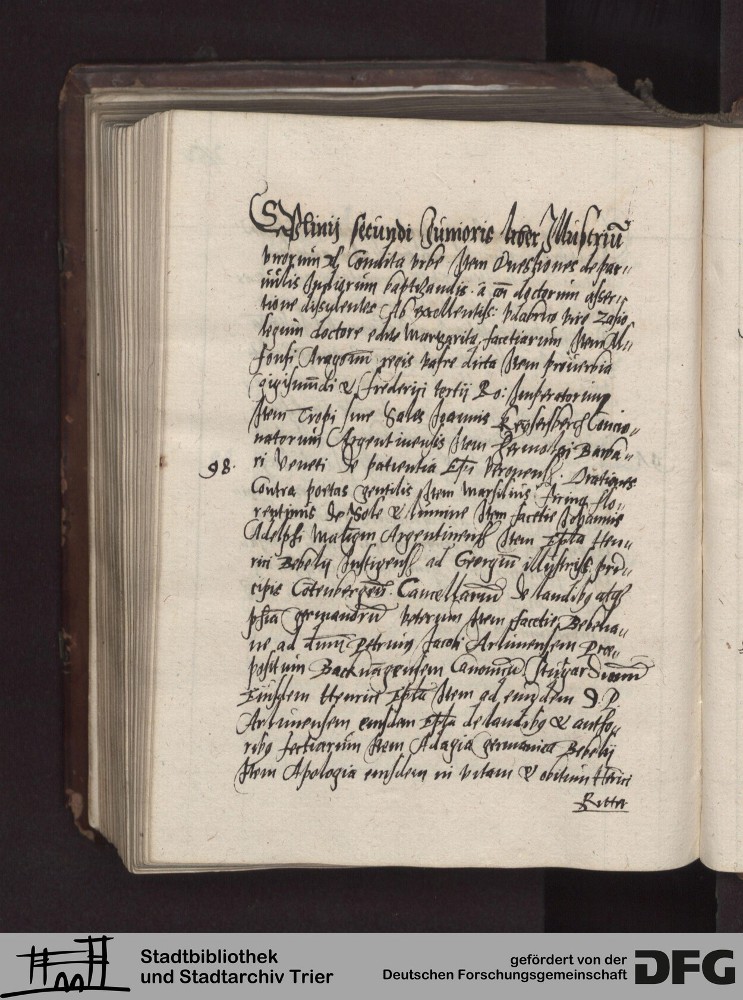 C Plinij secundi Junioris liber Illustriū
virorum de Condita vrbe Item Questiones de par„
uulis Judeorum baptizandis a cōi doctorum asser„
tione dissidentes Ab excellentiss: Vdalrico vire Zasio
legum doctore edite Margarita facetiarum Item Al„
fonsi Aragonū regis vafre dicta Item prouerbia
Sigismūdi & Frederici tertij Ro: Imperatorum
Item Tropi siue Sales Joannis Keysersberg Concio„
natorum Argentinensis Item Hermolai Barba„
98. ri Veneti Orationes
Contra poetas gentilis Item Marsilius Ficinus flo„
rentinus de Sole & lumine Item facetie Johannis
Adelphi Argentinens Item Epłā Hen„
rici Bebelij Justigens ad Georgiū illustriss: prin„
cipis Cancellariū de laudibꝫ atqꝫ
phīa germanorū veterum Item facetie Bebelia„
ne ad dnm̄ Petrum Jacobi Arlunensem Prae„
positum Backnangensem Canonicū Stutgardianū
Eiusdem Henrici Epłā Item ad eundem D. P.
Arlunensem eiusdem Epłā de laudibꝫ & autho„
ribꝫ facetiarum Item Adagia germanica Bebelij
Item Apologia eiusdem in vitam & obitum Hērici
Stadtbibliothek
und Stadtarchiv Trier
gefördert von der
Deutschen Forschungsgemeinschaft
DFG